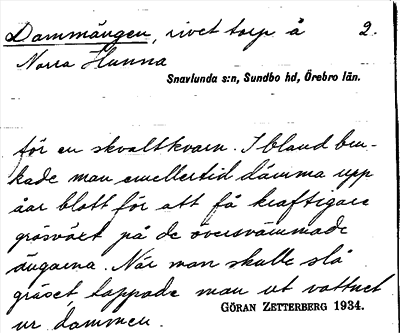 Dammängen, rivet torp å 2.
Norra Hunna
Snavlunda s:n, Sundbo hd, Örebro län.
för en skvaltkvarn. Ibland bru-
kade man emellertid dämma upp
åar blott för att få kraftigare
gräsväxt på de översvämmade
ängarna. När man skulle slå
gräset, tappade man ut vattnet
ur dammen.
GÖRAN ZETTERBERG 1934.